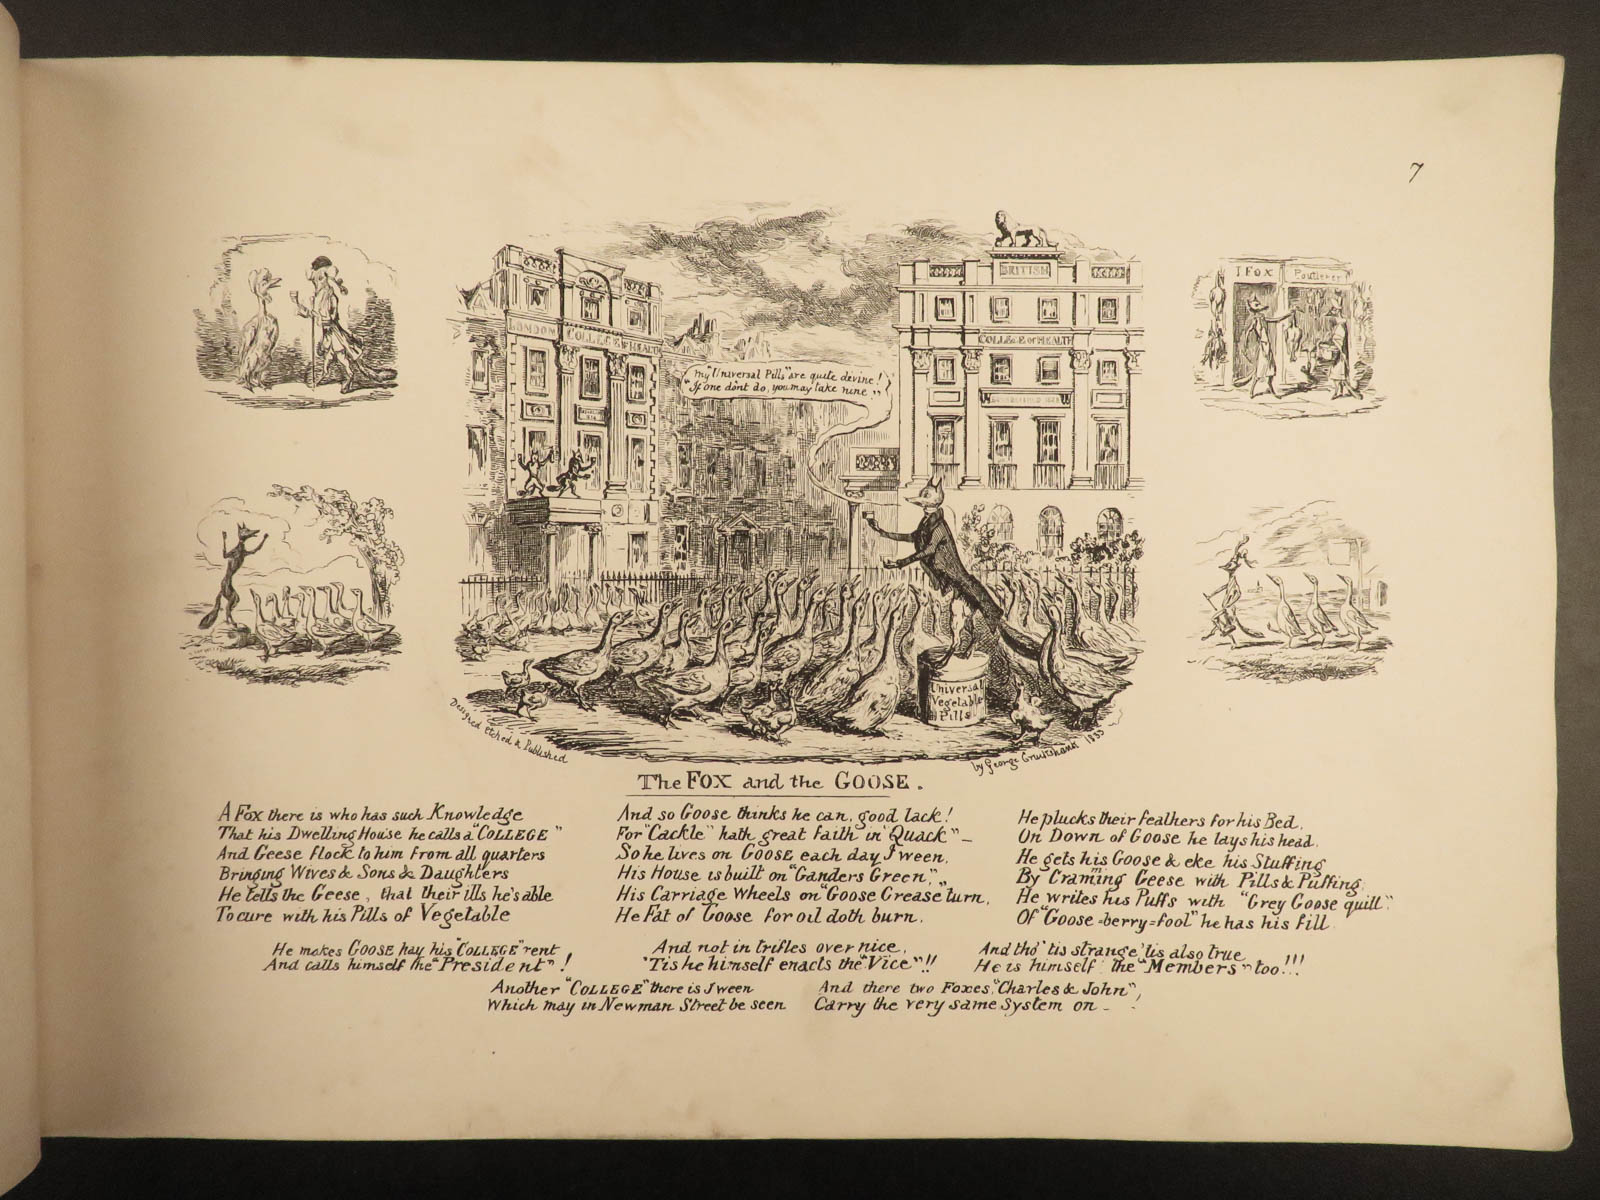 7
I FOX
Poulterer
BRITISH
LONDON COLLEGE OF HEALTH
COLLEGE OF HEALTH
My "Universal Pills" are quite devine!
"If one dont do, you may take nine"
Universal
Vegetable
Pills
Designed Etched & Published
by George Cruikshank 1833
The FOX and the GOOSE.
A Fox there is who has such Knowledge
That his Dwelling House he calls a "COLLEGE"
And Geese flock to him from all quarters
Bringing Wives & Sons & Daughters
He tells the Geese, that their ills he's able
To cure with his Pills of Vegetable
And so Goose thinks he can, good lack!
For "Cackle" hath great faith in "Quack" –
So he lives on GOOSE each day I ween,
His House is built on "Ganders Green",
His Carriage Wheels on "Goose Grease turn,
He Fat of Goose for oil doth burn.
He plucks their feathers for his Bed,
On Down of Goose he lays his head,
He gets his Goose & eke his Stuffing
By Craming Geese with Pills & Puffing,
He writes his Puffs with "Grey Goose quill"
Of "Goose=berry=fool" he has his fill
He makes GOOSE pay his "COLLEGE" rent
And calls himself the "President"!
And not in trifles over nice,
'Tis he himself enacts the "Vice"!!
And tho' tis strange 'tis also true
He is himself the "Members" too!!!
Another "COLLEGE" there is I ween
Which may in Newman Street be seen
And there two Foxes, "Charles & John",
Carry the very same System on – !